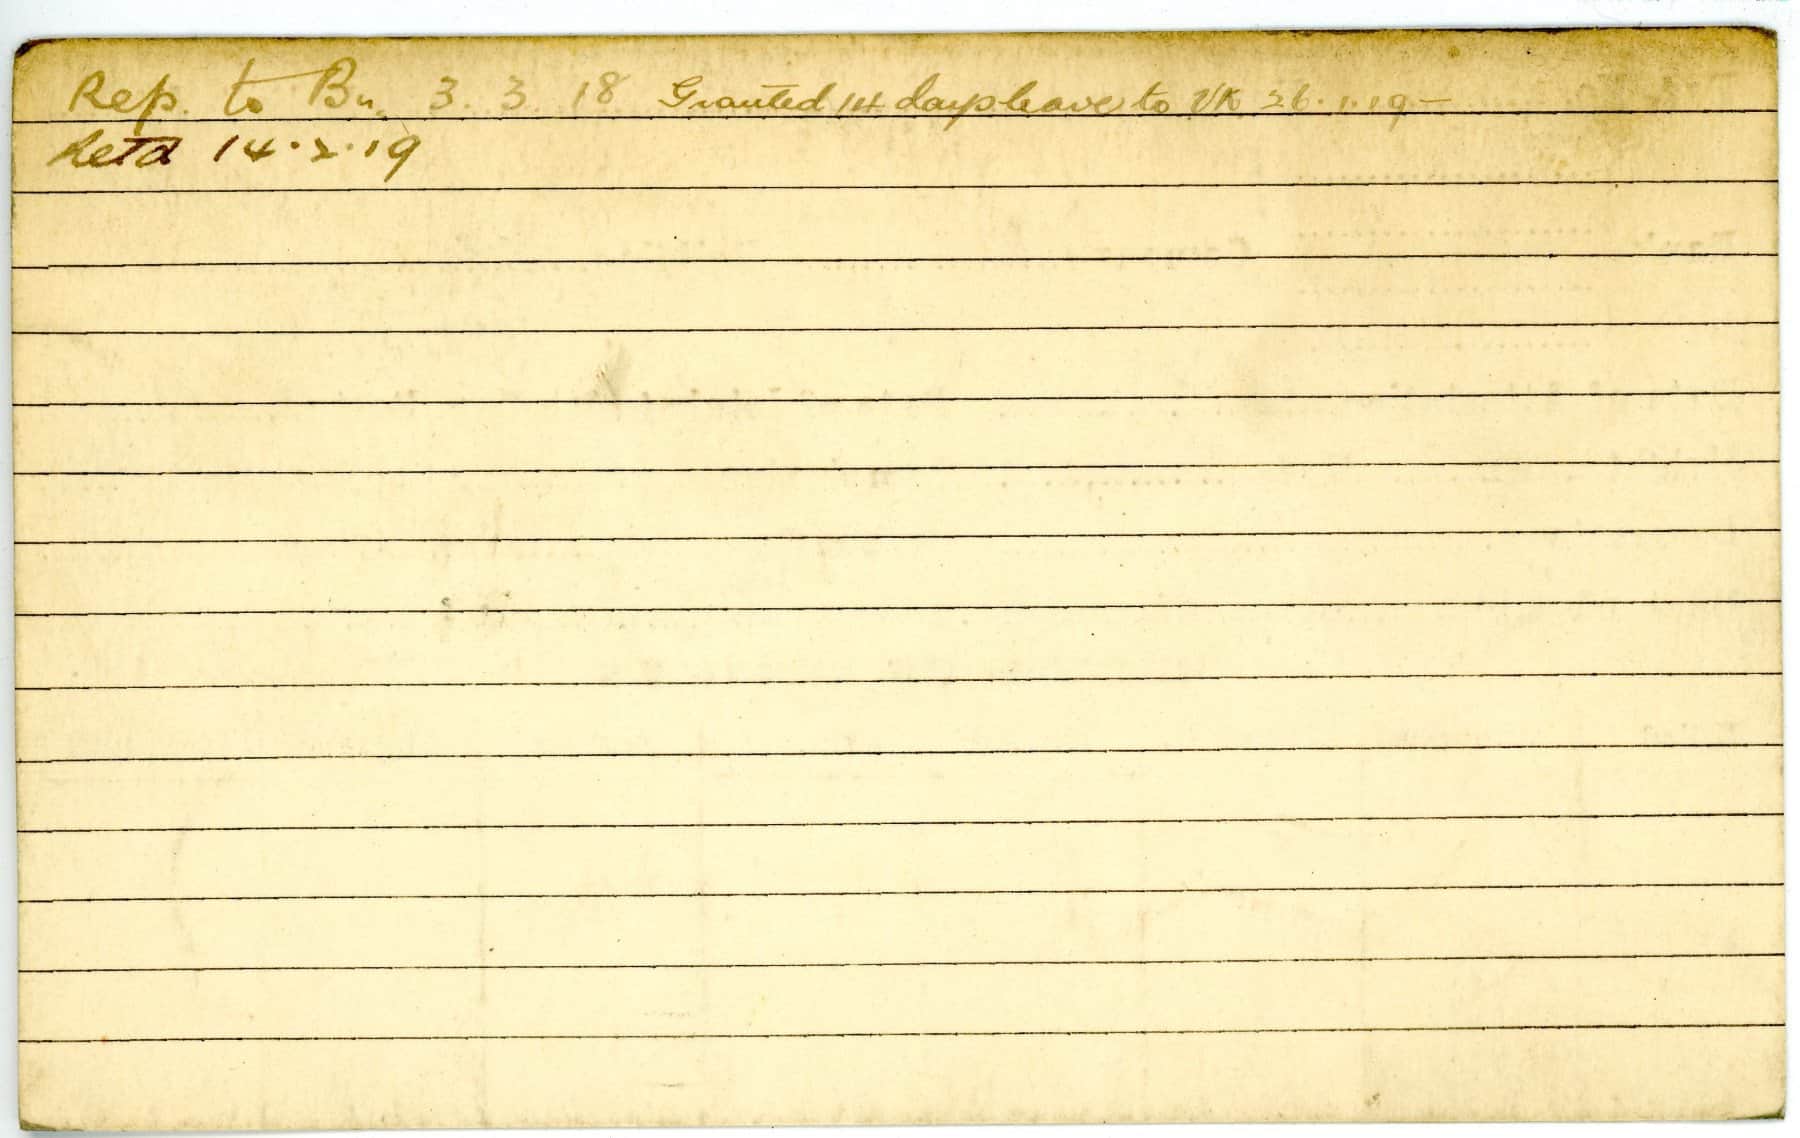 Rep. to Bn. 3. 3. 18 Granted 14 days leave to UK 26.1.19 –
Retd 14.2.19